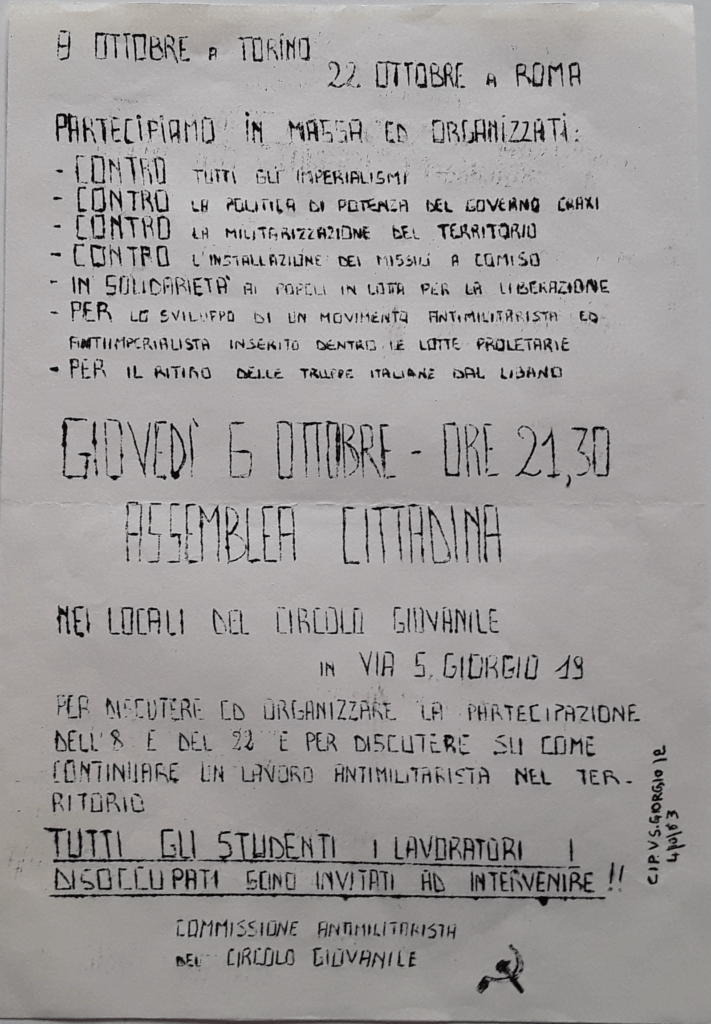 8 OTTOBRE A TORINO
22 OTTOBRE A ROMA
PARTECIPIAMO IN MASSA ED ORGANIZZATI:
- CONTRO TUTTI GLI IMPERIALISMI
- CONTRO LA POLITICA DI POTENZA DEL GOVERNO CRAXI
- CONTRO LA MILITARIZZAZIONE DEL TERRITORIO
- CONTRO L'INSTALLAZIONE DEI MISSILI A COMISO
- IN SOLIDARIETÀ AI POPOLI IN LOTTA PER LA LIBERAZIONE
- PER LO SVILUPPO DI UN MOVIMENTO ANTIMILITARISTA ED
ANTIIMPERIALISTA INSERITO DENTRO LE LOTTE PROLETARIE
- PER IL RITIRO DELLE TRUPPE ITALIANE DAL LIBANO
GIOVEDÌ 6 OTTOBRE - ORE 21,30
ASSEMBLEA CITTADINA
NEI LOCALI DEL CIRCOLO GIOVANILE
IN VIA S. GIORGIO 19
PER DISCUTERE ED ORGANIZZARE LA PARTECIPAZIONE
DELL'8 E DEL 22 E PER DISCUTERE SU COME
CONTINUARE UN LAVORO ANTIMILITARISTA NEL TER-
RITORIO
TUTTI GLI STUDENTI I LAVORATORI I
DISOCCUPATI SONO INVITATI AD INTERVENIRE !!
COMMISSIONE ANTIMILITARISTA
DEL CIRCOLO GIOVANILE
CIP VS. GIORGIO